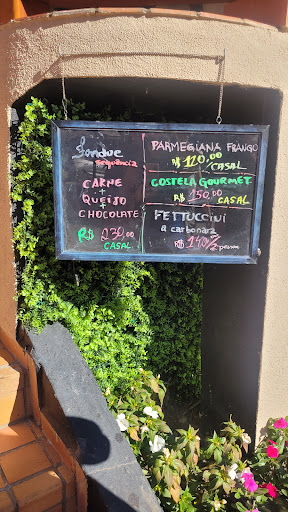 Fondue
sequência
CARNE
+
QUEIJO
+
CHOCOLATE
R$ 230,00
CASAL
PARMEGIANA FRANGO
R$ 120,00
CASAL
COSTELA GOURMET
R$ 150,00
CASAL
FETTUCCINI
a carbonara
R$ 140/2 pessoas